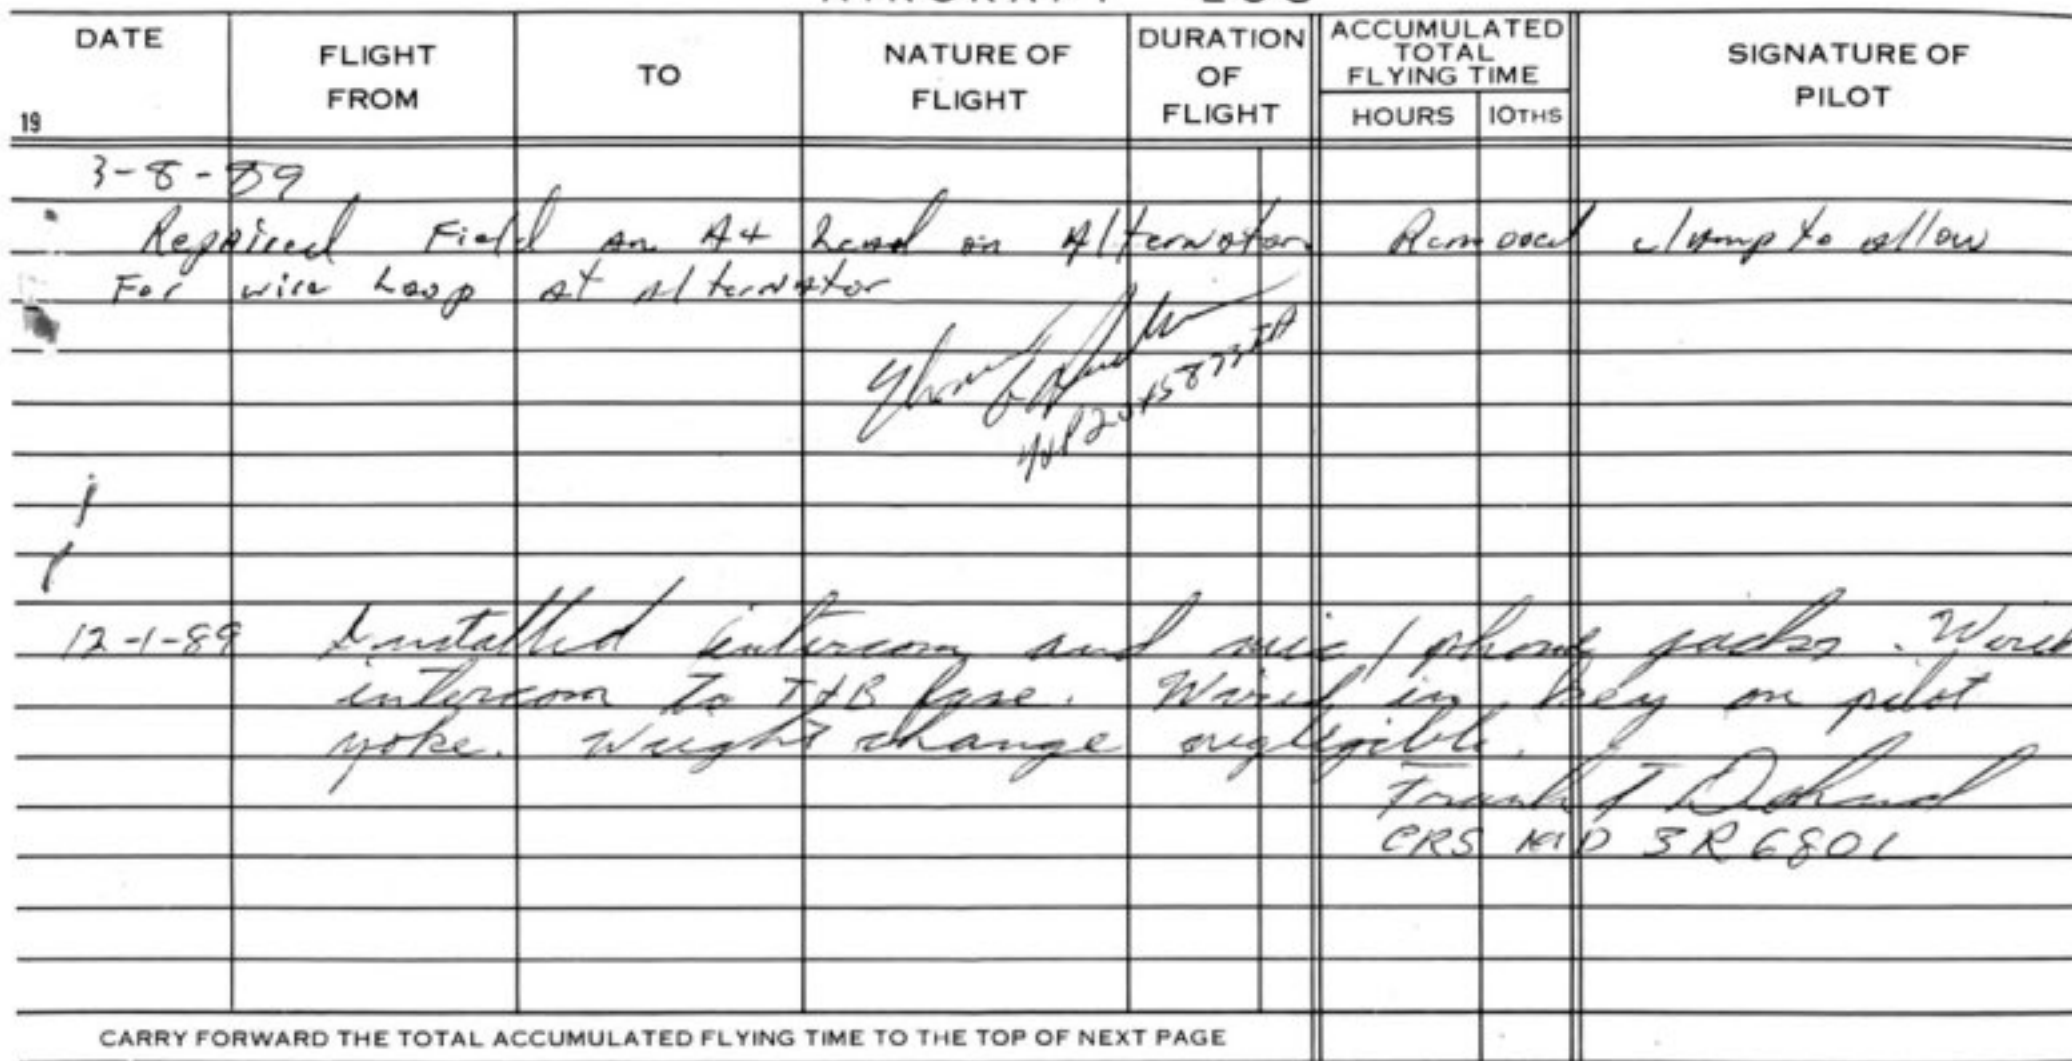 DATE
19
FLIGHT
FROM
TO
NATURE OF
FLIGHT
DURATION
OF
FLIGHT
ACCUMULATED
TOTAL
FLYING TIME
HOURS
10THS
SIGNATURE OF
PILOT
3-8-89
Repaired Field an At on Alternator Removed clamp to allow
For wire Loop at Alternator
12-1-89 Installed intercom and mic/phone jacks. Wired
intercom to T&B fuse. Wired in key on pilot
yoke. Weight change negligible.
Frank J
CRS 3R680L
CARRY FORWARD THE TOTAL ACCUMULATED FLYING TIME TO THE TOP OF NEXT PAGE